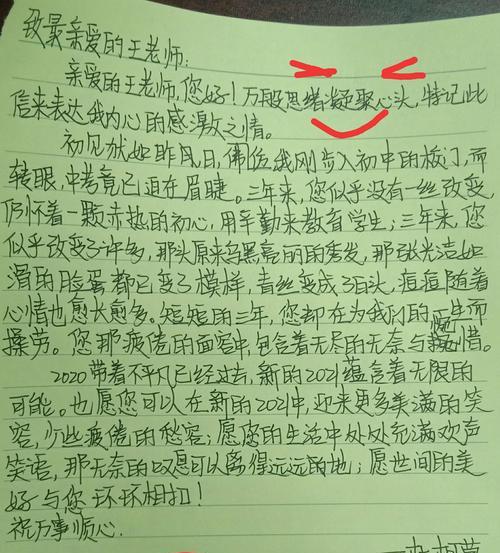 致最亲爱的王老师:
亲爱的王老师,您好!万般思绪凝聚心头,特记此
信来表达我内心的感激之情。
初见犹如昨日,彿佛我刚步入初中的校门,而
转眼,中考竟已迫在眉睫。三年来,您似乎没有一丝改变,
仍怀着一颗赤热的初心,用辛勤来教育学生;三年来,您
似乎改变了许多,那头原来乌黑亮丽的秀发,那张光洁如
滑的脸蛋都已变了模样,青丝变成了白头,痘痘随着
心情也愈长愈多。短短的三年,您却在为我们的一生而
操劳。您那疲倦的面容中,包含着无尽的无奈与惋惜。
2020带着不平凡已经过去,新的2021蕴含着无限的
可能。也愿您可以在新的2021中,迎来更多美满的笑
容,少些疲倦的愁容;愿您的生活中处处充满欢声
笑语,那无奈的叹息可以离得远远的地;愿世间的美
好与您环环相扣!
祝万事顺心.